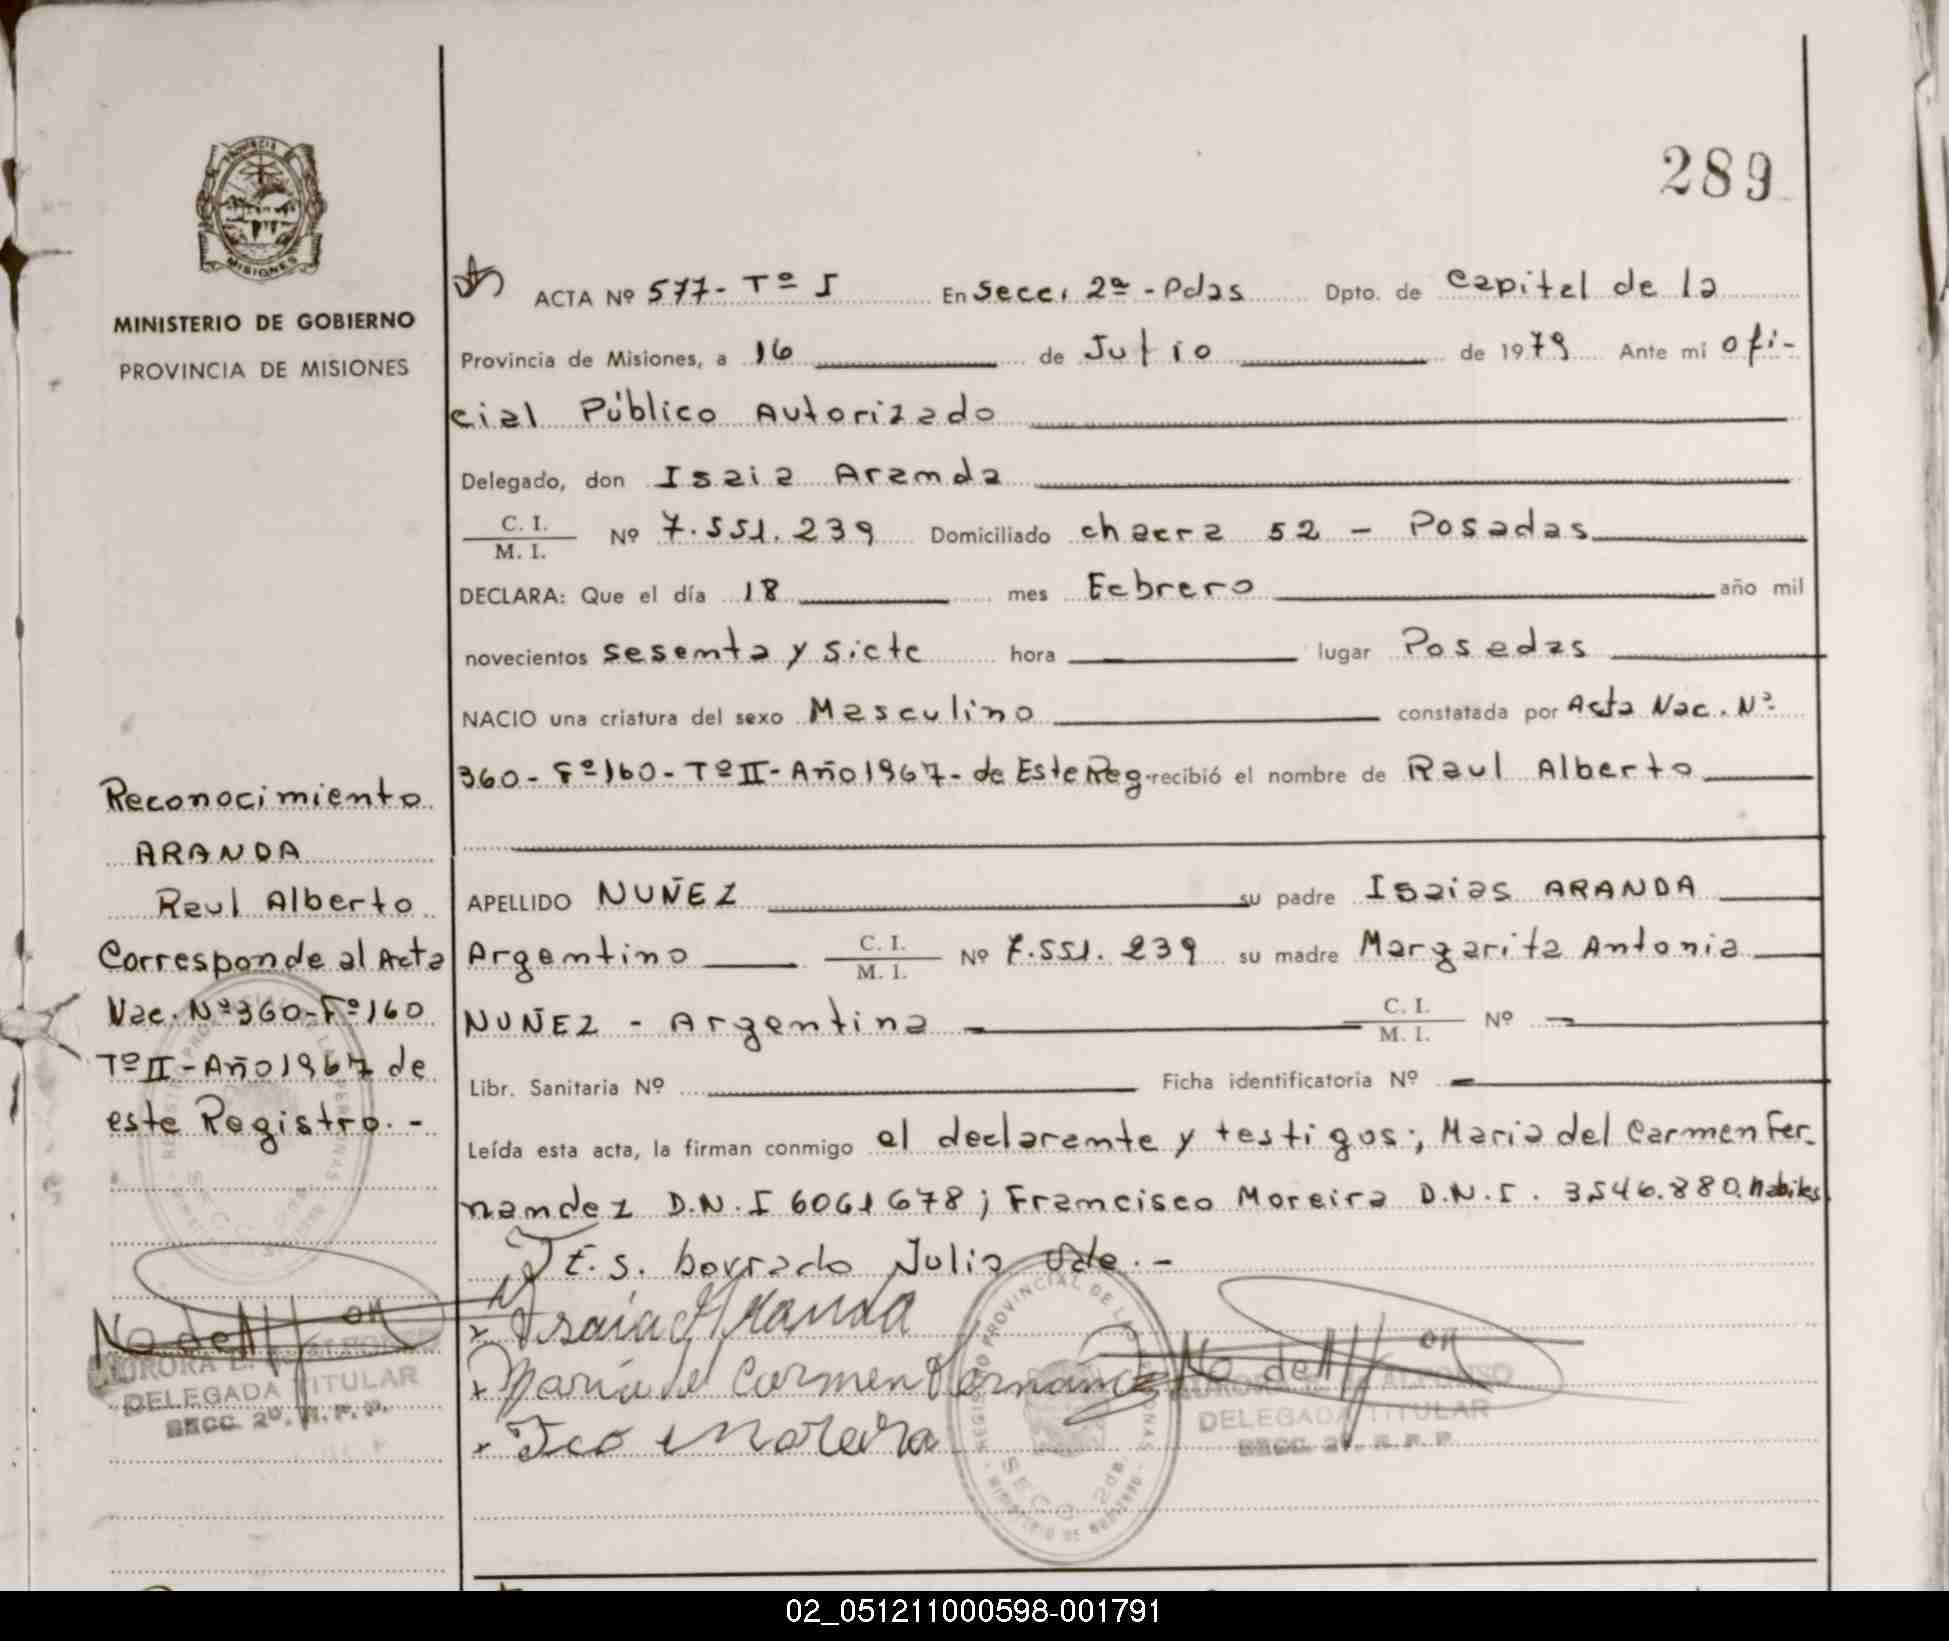 289
PROVINCIA
MISIONES
MINISTERIO DE GOBIERNO
PROVINCIA DE MISIONES
ACTA Nº 577- Tº I En Secc, 2ª - Pdas Dpto. de Capital de la
Provincia de Misiones, a 16 de Julio de 1979 Ante mi ofi-
cial Público Autorizado
Delegado, don Isaia Aranda
C. I.
M. I. Nº 7.551.239 Domiciliado chacra 52 - Posadas
DECLARA: Que el día 18 mes Febrero año mil
novecientos sesenta y siete hora lugar Posadas
NACIO una criatura del sexo Masculino constatada por Acta Nac. Nº
360- Fº 160- Tº II- Año 1967- de Este Reg. recibió el nombre de Raul Alberto
APELLIDO NUÑEZ su padre Isaias ARANDA
Argentino C. I.
M. I. Nº 7.551.239 su madre Margarita Antonia
NUÑEZ - Argentina C. I.
M. I. Nº
Libr. Sanitaria Nº Ficha identificatoria Nº
Leída esta acta, la firman conmigo el declarante y testigos; Maria del Carmen Fer-
nandez D.N.I 6061678; Francisco Moreira D.N.I. 3.546.880. habiles
E. s. borrado Julio Vale.-
Isaia Aranda
Maria del Carmen Fernandez
Fco Moreira
Reconocimiento
ARANDA
Raul Alberto
Corresponde al Acta
Nac. Nº 360- Fº 160
Tº II - Año 1967 de
este Registro.-
AURORA DELEGADA TITULAR
SECC. 2º. R. P. P.
REGISTRO PROVINCIAL DE LAS PERSONAS
SECC. 2DA.
MINISTERIO DE GOBIERNO
DELEGADA TITULAR
SECC. 2º. R. P. P.
02_051211000598-001791